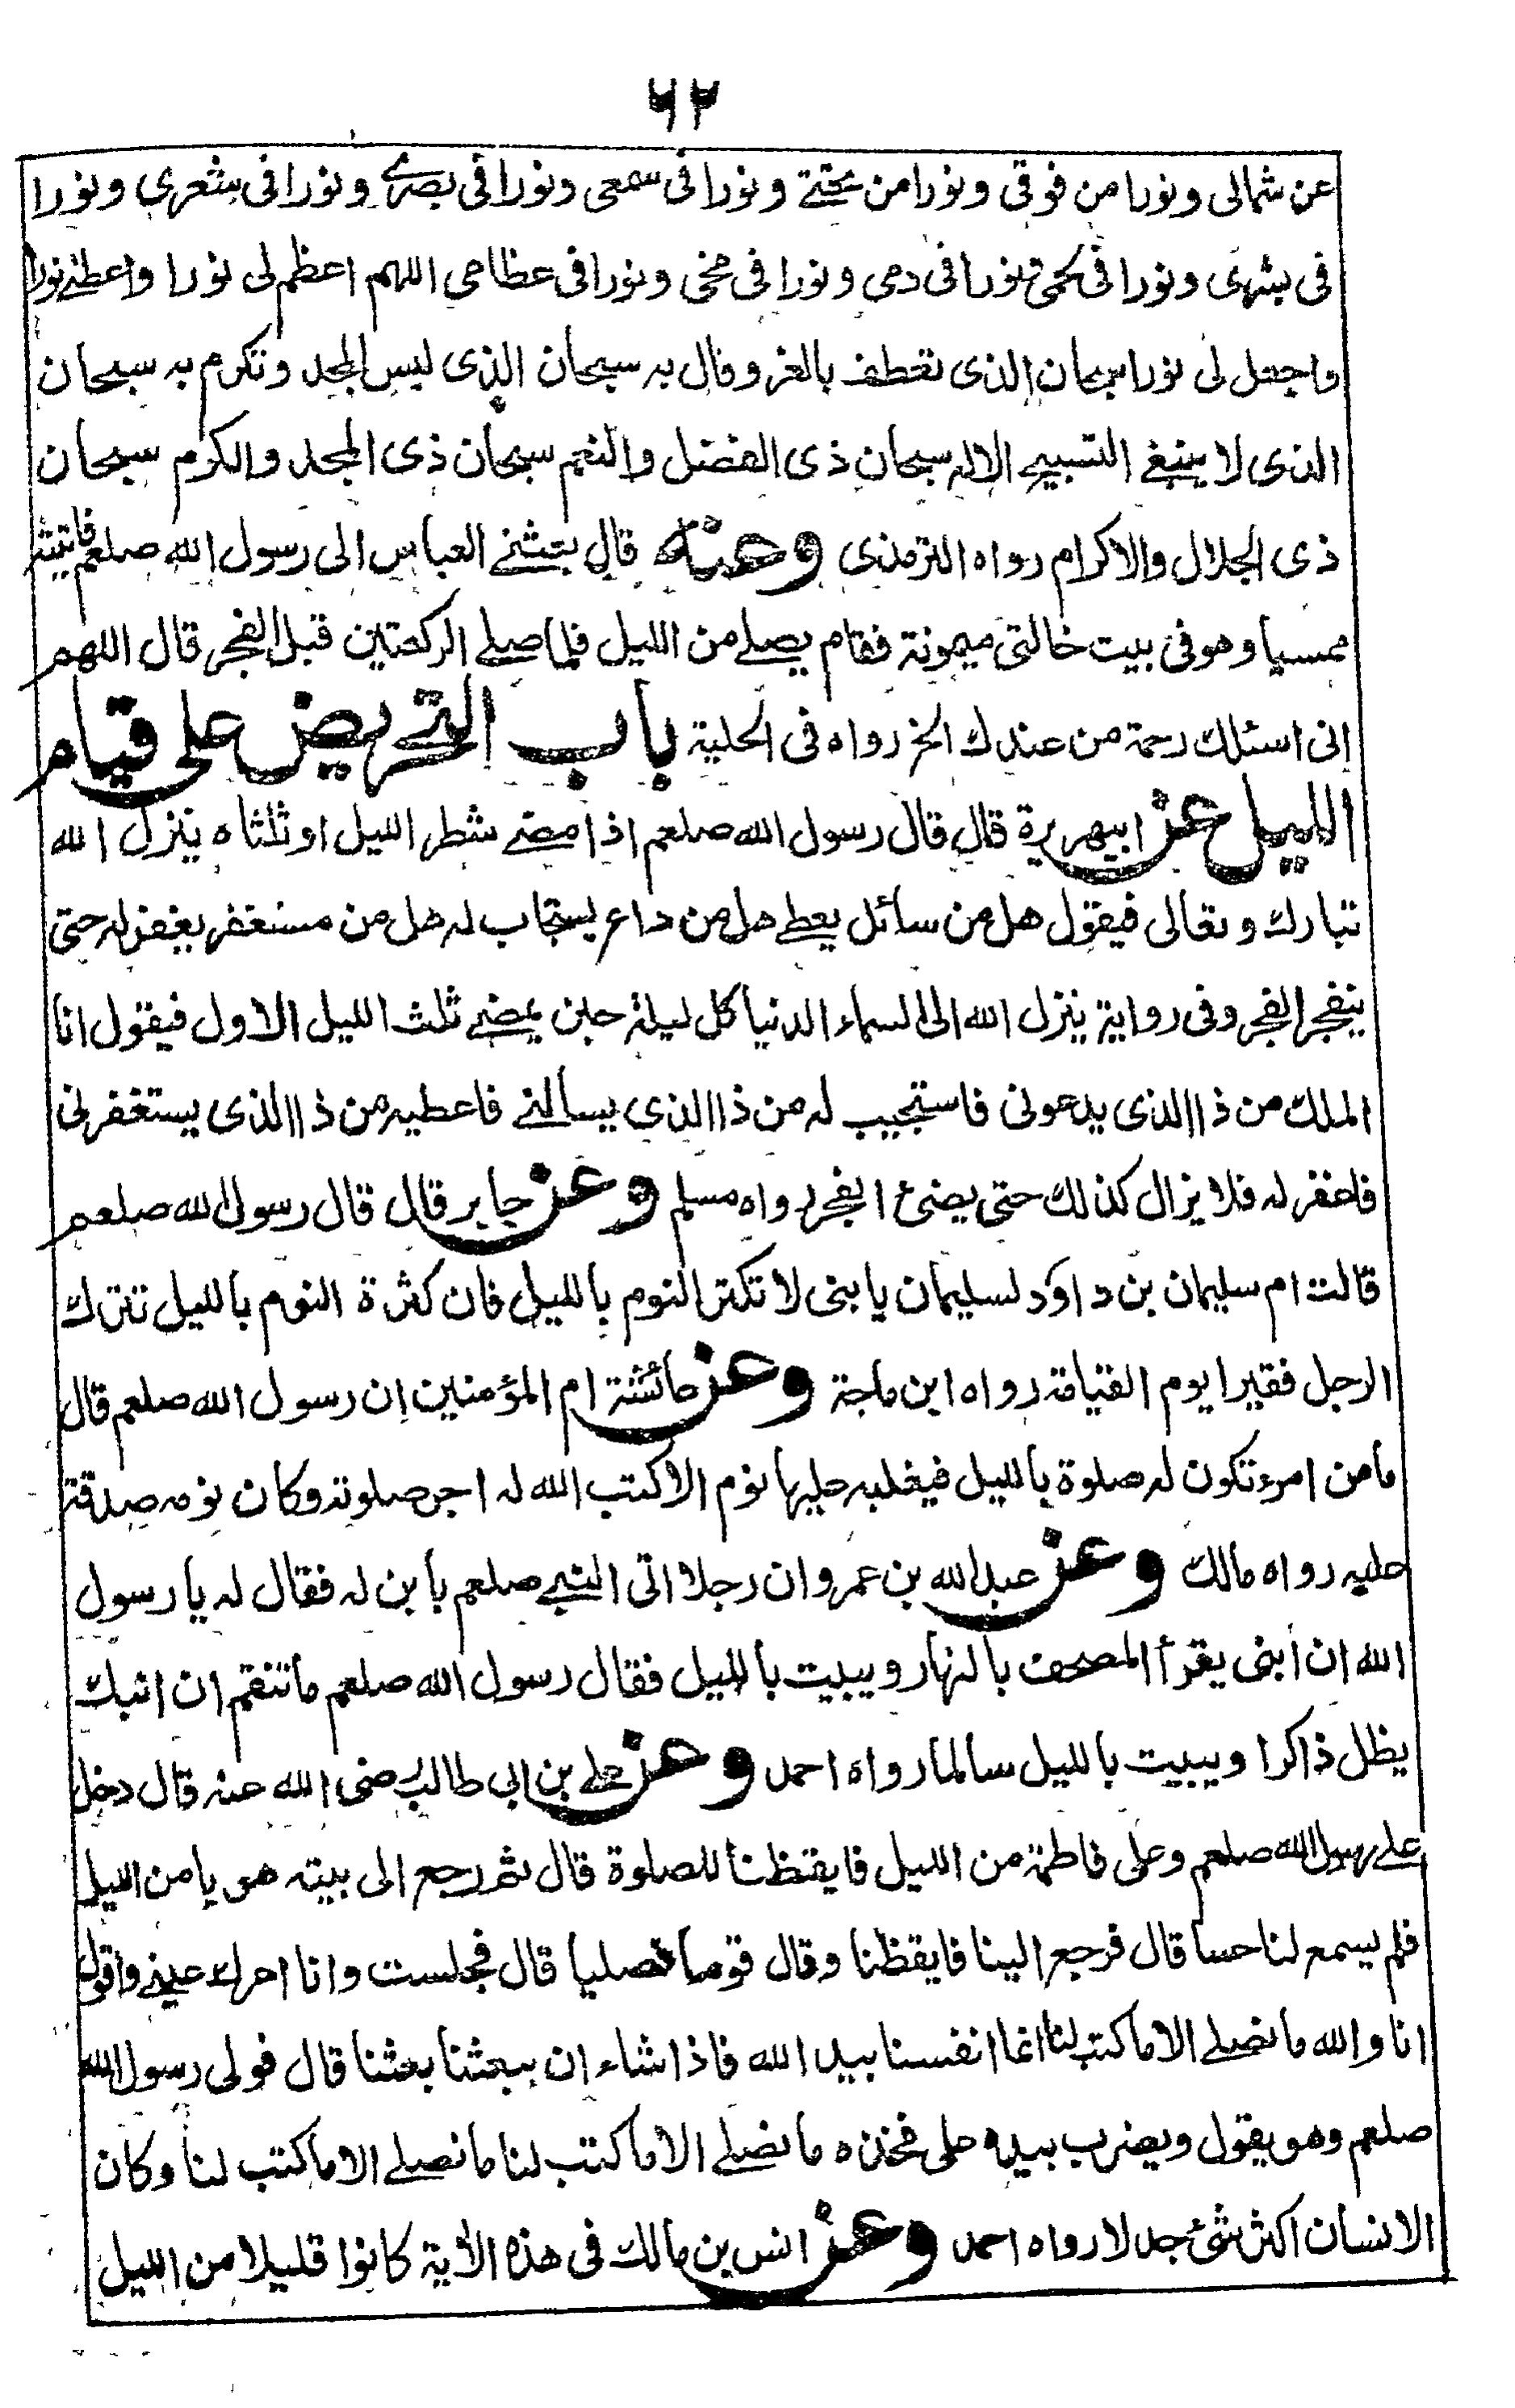 ٦٢
عن شمالى ونورا من فوقى ونورا من تحتى ونورا فى سمعى ونورا فى بصرى ونورا فى شعرى ونورا
فى بشرى ونورا فى لحمى ونورا فى دمى ونورا فى مخى ونورا فى عظامى اللهم اعظم لى نورا واعطنى نورا
واجعل لى نورا سبحان الذى تعطف بالعز وقال به سبحان الذى لبس المجد وتكرم به سبحان
الذى لا ينبغى التسبيح الا له سبحان ذى الفضل والنعم سبحان ذى المجد والكرم سبحان
ذى الجلال والاكرام رواه الترمذى وعنه قال بعثنى العباس الى رسول الله صلعم فاتيته
ممسيا وهو فى بيت خالتى ميمونة فقام يصلى من الليل فلما صلى الركعتين قبل الفجر قال اللهم
انى اسئلك رحمة من عندك الخ رواه فى الحلية باب التحريض على قيام
الليل عن ابيهريرة قال قال رسول الله صلعم اذا مضى شطر الليل او ثلثاه ينزل الله
تبارك وتعالى فيقول هل من سائل يعطى هل من داع يستجاب له هل من مستغفر يغفر له حتى
ينفجر الفجر وفى رواية ينزل الله الى السماء الدنيا كل ليلة حين يمضى ثلث الليل الاول فيقول انا
الملك من ذا الذى يدعونى فاستجيب له من ذا الذى يسألنى فاعطيه من ذا الذى يستغفرنى
فاغفر له فلا يزال كذلك حتى يضئ الفجر رواه مسلم وعن جابر قال قال رسول الله صلعم
قالت ام سليمان بن داود لسليمان يا بنى لا تكثر النوم بالليل فان كثرة النوم بالليل تترك
الرجل فقيرا يوم القيامة رواه ابن ماجة وعن عائشة ام المؤمنين ان رسول الله صلعم قال
ما من امرء تكون له صلوة بالليل فيغلبه عليها نوم الا كتب الله له اجر صلوته وكان نومه صدقة
عليه رواه مالك وعن عبد الله بن عمرو ان رجلا اتى النبى صلعم بابن له فقال له يا رسول
الله ان ابنى يقرأ المصحف بالنهار ويبيت بالليل فقال رسول الله صلعم ما تنقم ان ابنك
يظل ذاكرا ويبيت بالليل سالما رواه احمد وعن على بن ابى طالب رضى الله عنه قال دخل
على رسول الله صلعم وعلى فاطمة من الليل فايقظنا للصلوة قال ثم رجع الى بيته هويا من الليل
فلم يسمع لنا حسا قال فرجع الينا فايقظنا وقال قوما فصليا قال فجلست وانا احرك عينى واقول
انا والله ما نصلى الا ما كتب لنا انما انفسنا بيد الله فاذا شاء ان يبعثنا بعثنا قال فولى رسول الله
صلعم وهو يقول ويضرب بيده على فخذه ما نصلى الا ما كتب لنا ما نصلى الا ما كتب لنا وكان
الانسان اكثر شئ جدلا رواه احمد وعن انس بن مالك فى هذه الآية كانوا قليلا من الليل